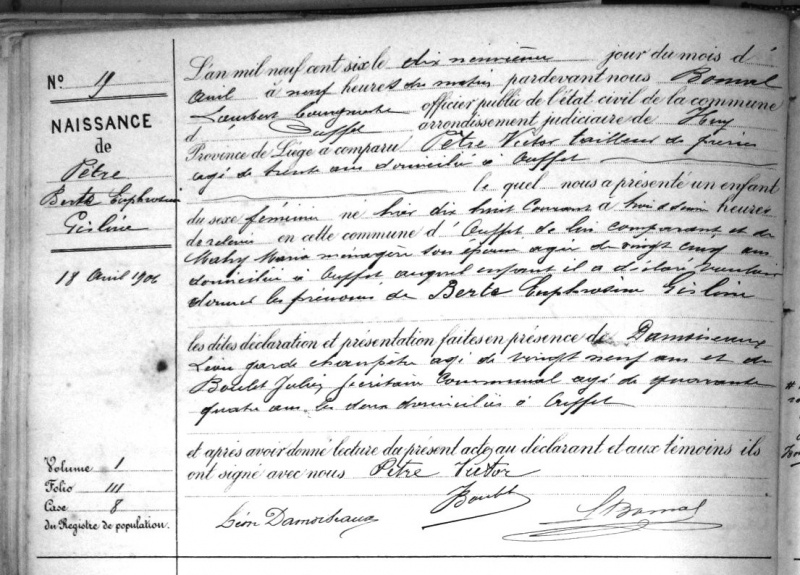 N° 19
NAISSANCE
de
Pètre
Berte Euphrosine
Gisline
18 Avril 1906
Volume 1
Folio 111
Case 8
du Registre de population.
L'an mil neuf cent six le dix neuvième jour du mois d'
Avril à neuf heures du matin pardevant nous Bonnal
Lambert Bourgmestre officier public de l'état civil de la commune
d' Ouffet arrondissement judiciaire de Huy
Province de Liège a comparu Pètre Victor tailleur de pierres
agé de trente ans domicilié à Ouffet
le quel nous a présenté un enfant
du sexe féminin né hier dix huit Courant à trois et demie heures
de relevée en cette commune d'Ouffet de lui comparant et de
Mahy Maria ménagère son épouse agée de vingt cinq ans
domiciliée à Ouffet auquel enfant il a déclaré vouloir
donner les prénoms de Berte Euphrosine Gisline
les dites déclaration et présentation faites en présence de Damoiseaux
Léon garde champêtre agé de vingt neuf ans et de
Boulet Jules secrétaire Communal agé de quarante
quatre ans les deux domiciliés à Ouffet
et après avoir donné lecture du présent acte au déclarant et aux témoins ils
ont signé avec nous Pètre Victor
Boulet
Léon Damoiseaux
L Bonnal